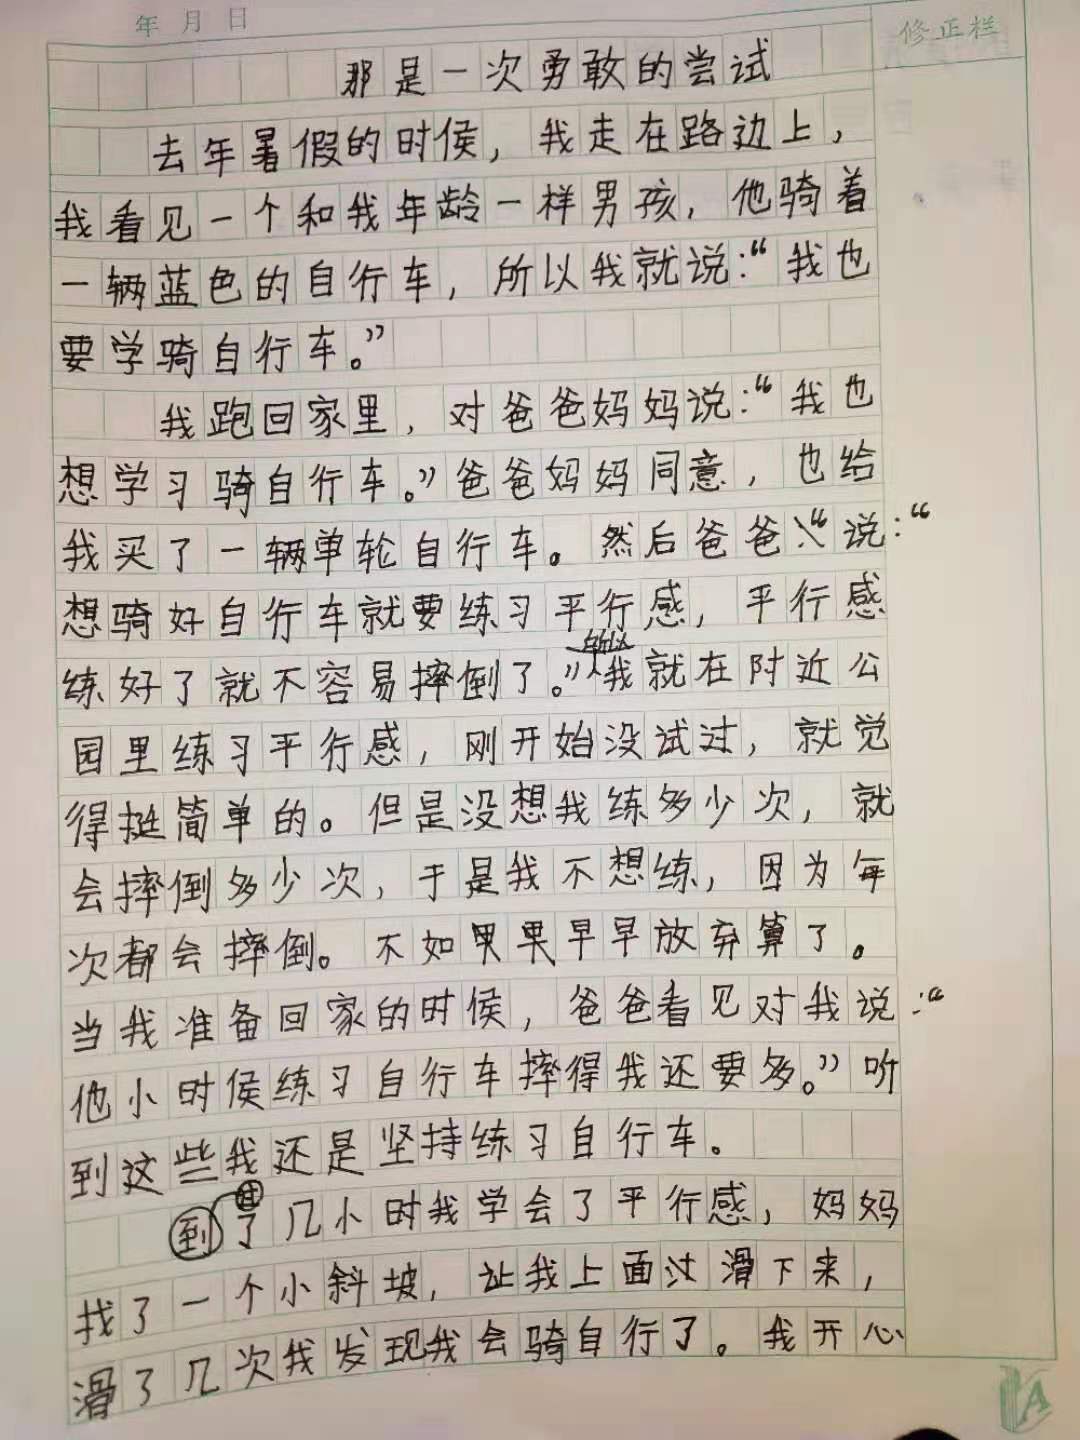 年 月 日
修正栏
那是一次勇敢的尝试
去年暑假的时侯，我走在路边上，
我看见一个和我年龄一样男孩，他骑着
一辆蓝色的自行车，所以我就说：“我也
要学骑自行车。”
我跑回家里，对爸爸妈妈说：“我也
想学习骑自行车。”爸爸妈妈同意，也给
我买了一辆单轮自行车。然后爸爸说：“
想骑好自行车就要练习平行感，平行感
练好了就不容易摔倒了。”所以我就在附近公
园里练习平行感，刚开始没试过，就觉
得挺简单的。但是没想我练多少次，就
会摔倒多少次，于是我不想练，因为每
次都会摔倒。不如果果早早放弃算了。
当我准备回家的时侯，爸爸看见对我说：“
他小时侯练习自行车摔得我还要多。”听
到这些我还是坚持练习自行车。
到了几小时我学会了平行感，妈妈
找了一个小斜坡，让我上面过滑下来，
滑了几次我发现我会骑自行了。我开心